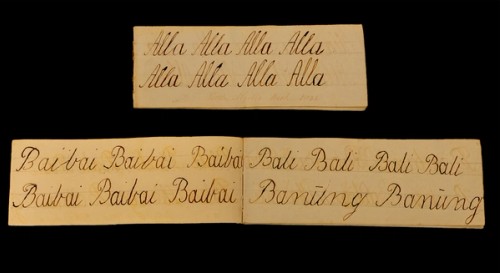 Alla Alla Alla Alla
Alla Alla Alla Alla
Baibai Baibai Baibai
Baibai Baibai Baibai
Bali Bali Bali Bali
Banūng Banūng